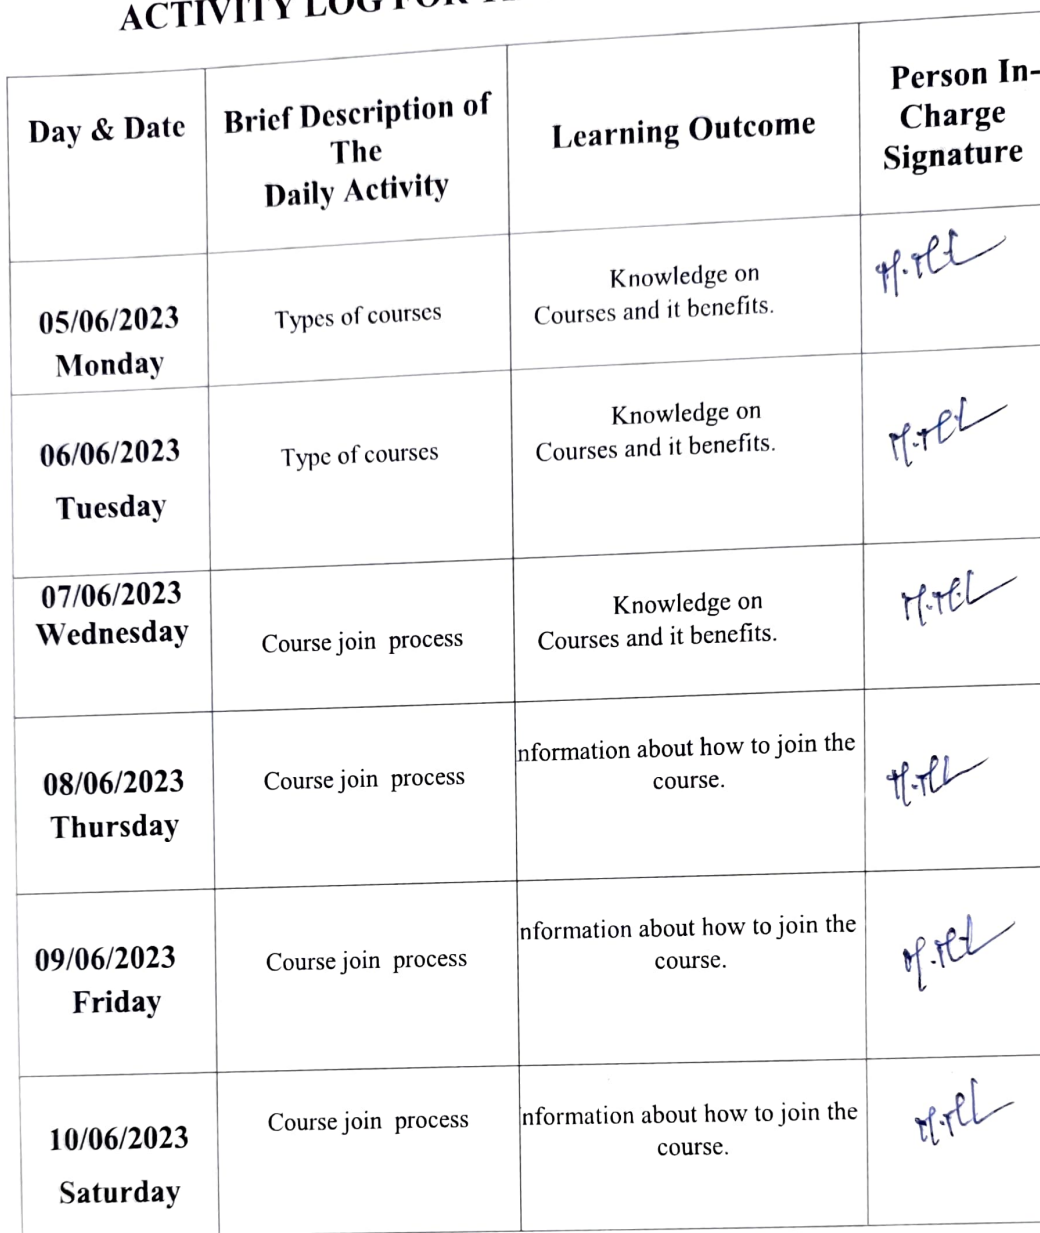 ACTIVITY LOG FOR
Day & Date
Brief Description of
The
Daily Activity
Learning Outcome
Person In-
Charge
Signature
05/06/2023
Monday
Types of courses
Knowledge on
Courses and it benefits.
06/06/2023
Tuesday
Type of courses
Knowledge on
Courses and it benefits.
07/06/2023
Wednesday
Course join process
Knowledge on
Courses and it benefits.
08/06/2023
Thursday
Course join process
nformation about how to join the
course.
09/06/2023
Friday
Course join process
nformation about how to join the
course.
10/06/2023
Saturday
Course join process
nformation about how to join the
course.